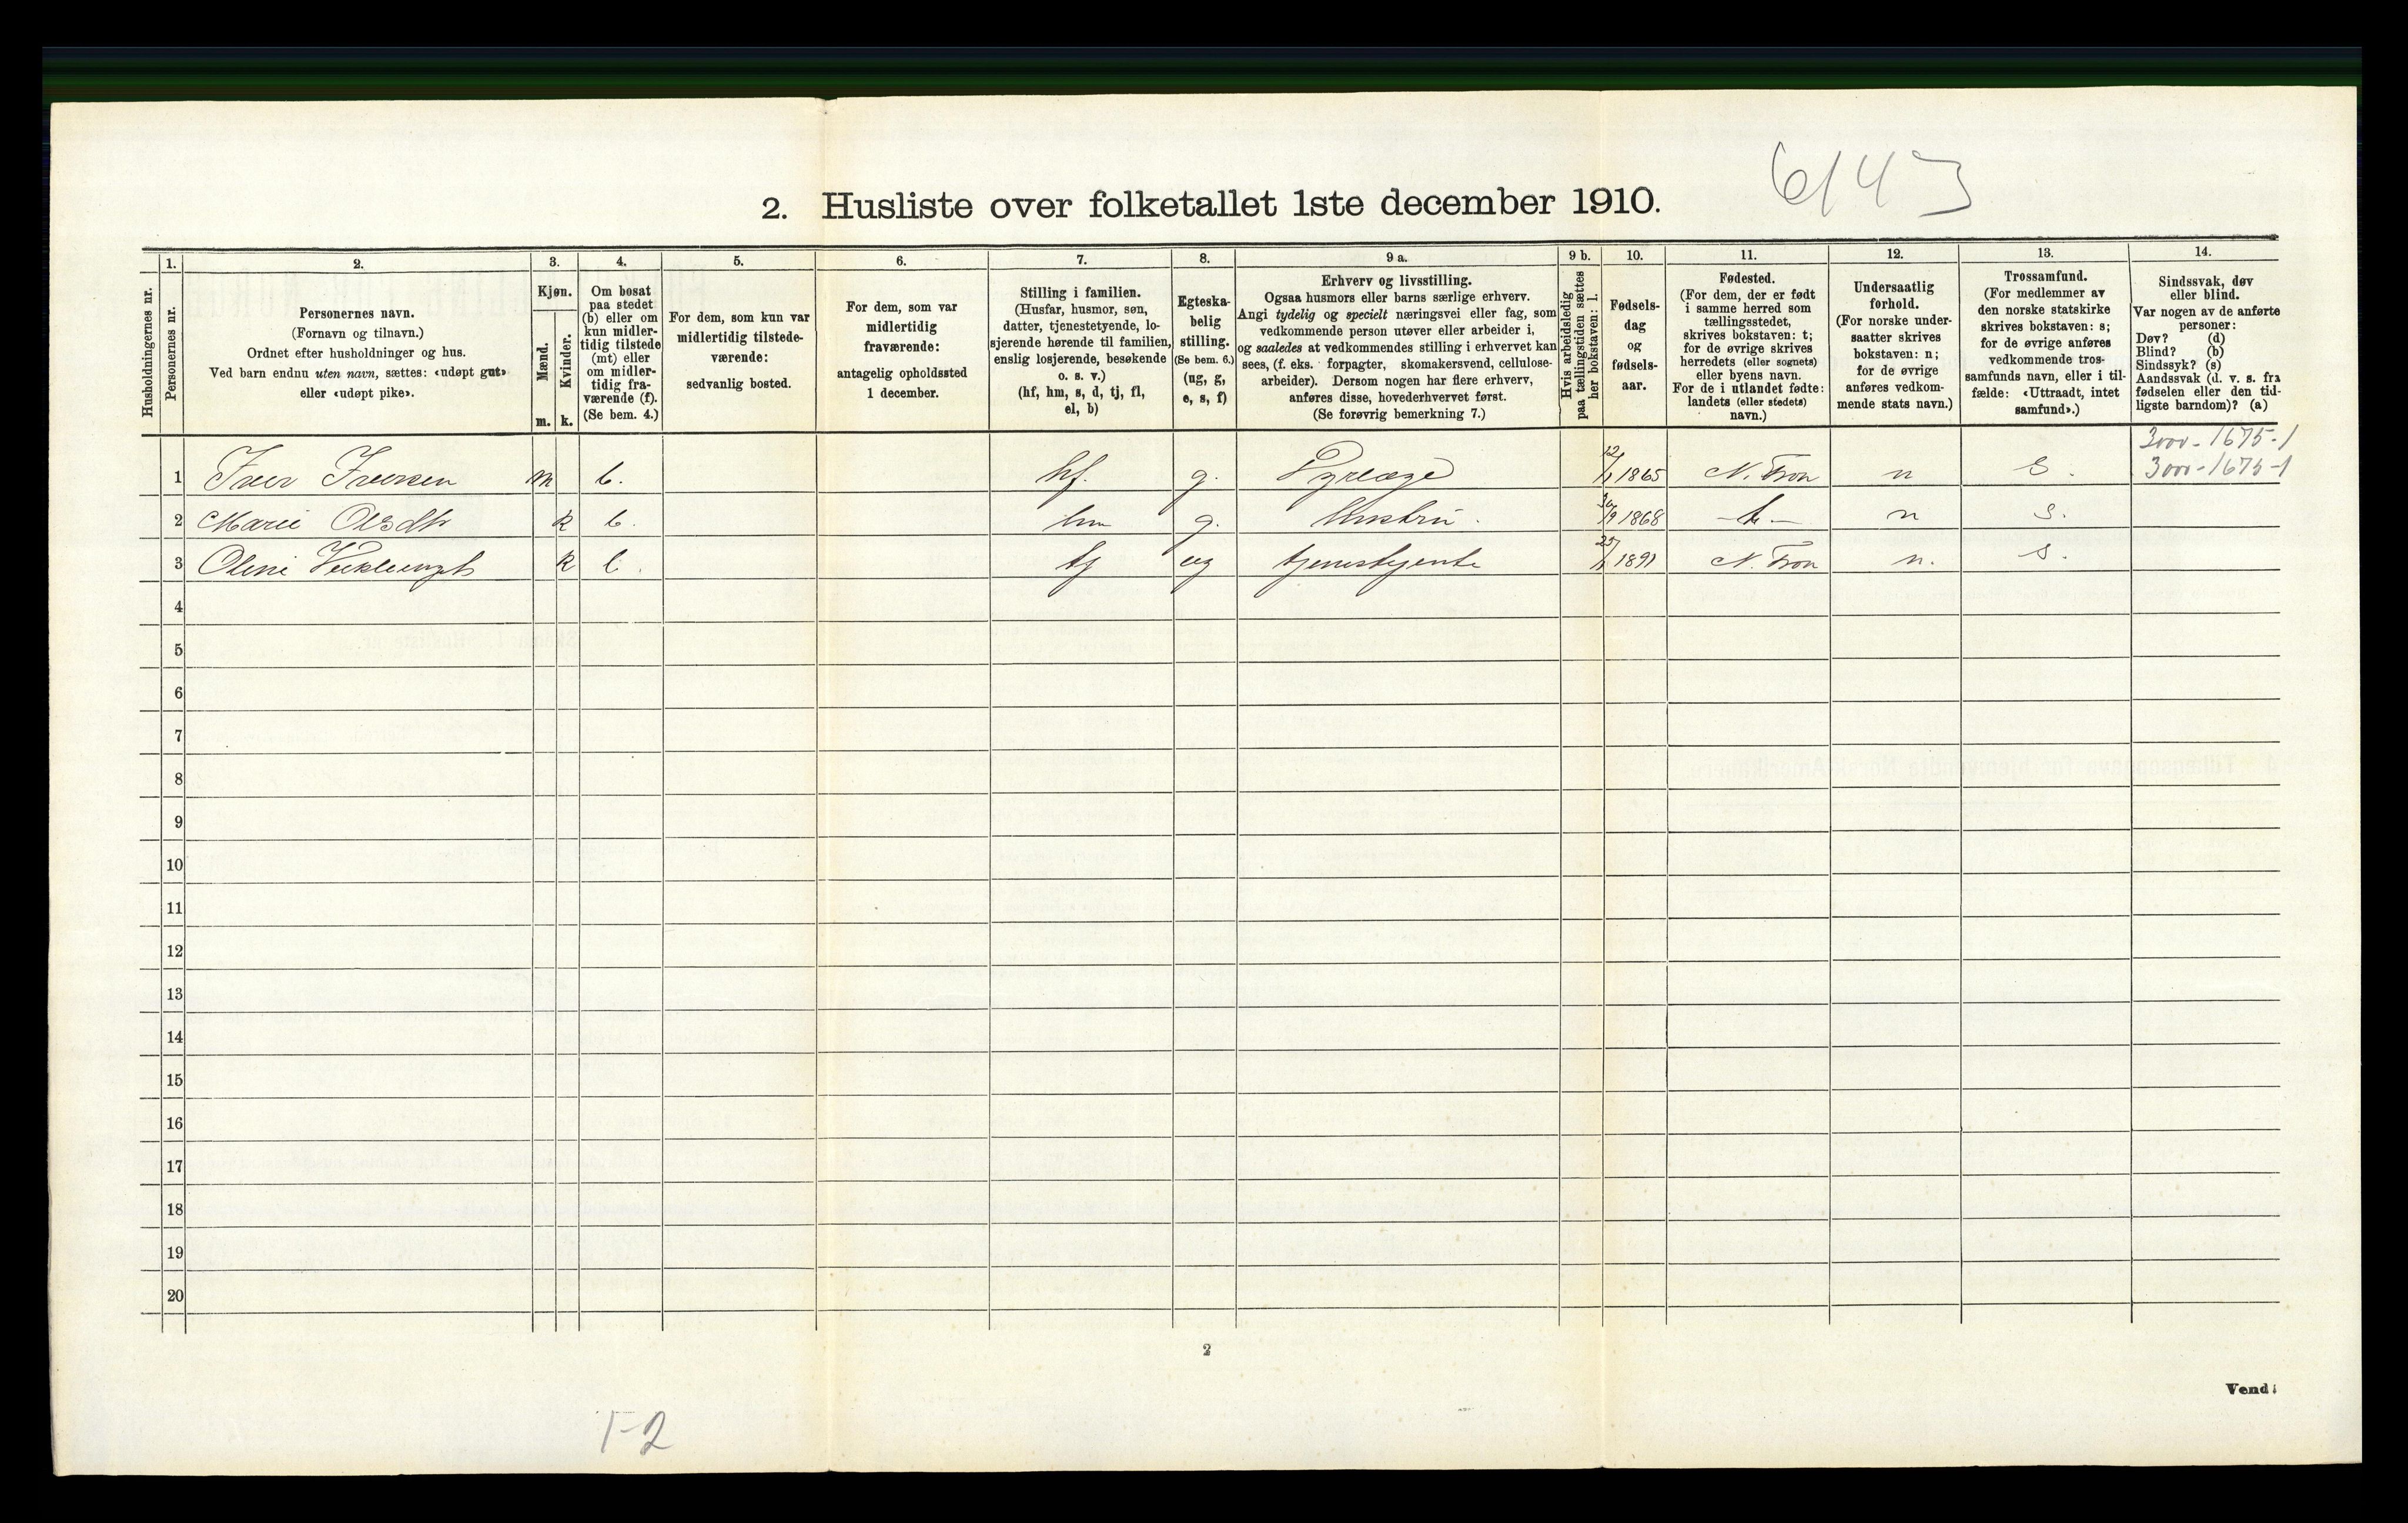 6143
2. Husliste over folketallet 1ste december 1910.
Husholdningernes nr.
1. Personernes nr.
2. Personernes navn.
(Fornavn og tilnavn.)
Ordnet efter husholdninger og hus.
Ved barn endnu uten navn, sættes: «udøpt gut»
eller «udøpt pike».
3. Kjøn.
Mænd. m.
Kvinder. k.
4. Om bosat
paa stedet
(b) eller om
kun midler-
tidig tilstede
(mt) eller
om midler-
tidig fra-
værende (f).
(Se bem. 4.)
5. For dem, som kun var
midlertidig tilstede-
værende:
sedvanlig bosted.
6. For dem, som var
midlertidig
fraværende:
antagelig opholdssted
1 december.
7. Stilling i familien.
(Husfar, husmor, søn,
datter, tjenestetyende, lo-
sjerende hørende til familien,
enslig losjerende, besøkende
o. s. v.)
(hf, hm, s, d, tj, fl,
el, b)
8. Egteska-
belig
stilling.
(Se bem. 6.)
(ug, g,
e, s, f)
9 a. Erhverv og livsstilling.
Ogsaa husmors eller barns særlige erhverv.
Angi tydelig og specielt næringsvei eller fag, som
vedkommende person utøver eller arbeider i,
og saaledes at vedkommendes stilling i erhvervet kan
sees, (f. eks. forpagter, skomakersvend, cellulose-
arbeider). Dersom nogen har flere erhverv,
anføres disse, hovederhvervet først.
(Se forøvrig bemerkning 7.)
9 b. Hvis arbeidsledig
paa tællingstiden sættes
her bokstaven: l.
10. Fødsels-
dag
og
fødsels-
aar.
11. Fødested.
(For dem, der er født
i samme herred som
tællingsstedet,
skrives bokstaven: t;
for de øvrige skrives
herredets (eller sognets)
eller byens navn.
For de i utlandet fødte:
landets (eller stedets)
navn.)
12. Undersaatlig
forhold.
(For norske under-
saatter skrives
bokstaven: n;
for de øvrige
anføres vedkom-
mende stats navn.)
13. Trossamfund.
(For medlemmer av
den norske statskirke
skrives bokstaven: s;
for de øvrige anføres
vedkommende tros-
samfunds navn, eller i til-
fælde: «Uttraadt, intet
samfund».)
14. Sindssvak, døv
eller blind.
Var nogen av de anførte
personer:
Døv? (d)
Blind? (b)
Sindssyk? (s)
Aandssvak (d. v. s. fra
fødselen eller den tid-
ligste barndom)? (a)
3000-1675-1
1 Iver Iversen m b. hf. g. Dyrlæge 1865 N. Fron n S. 3000-1675-1
2 Marie Olsdtr k b. hm g. Hustru. 30/9 1868 -t- n S.
3 Oline k b. tj ug tjenestejente 1891 N. Fron n. S.
4
5
6
7
8
9
10
11
12
13
14
15
16
17
18
19
20
2
Vend!
1-2